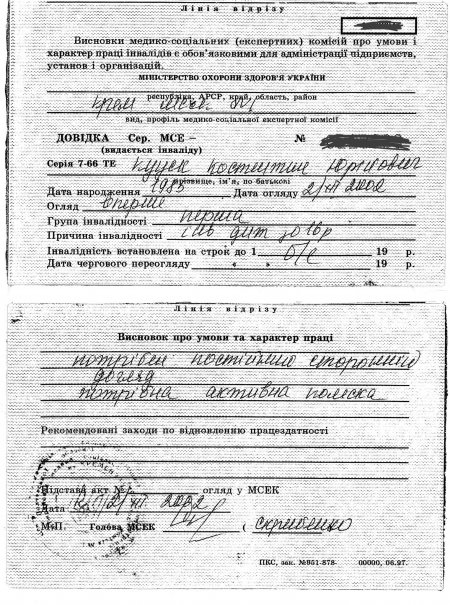 Лінія відрізу
Висновки медико-соціальних (експертних) комісій про умови і
характер праці інвалідів є обов'язковими для адміністрації підприємств,
установ і організацій.
МІНІСТЕРСТВО ОХОРОНИ ЗДОРОВ'Я УКРАЇНИ
республіка, АРСР, край, область, район
вид, профіль медико-соціальної експертної комісії
ДОВІДКА Сер. МСЕ – №
(видається інваліду)
Серія 7-66 ТЕ
прізвище, ім'я, по батькові
Дата народження 1983 Дата огляду
Огляд вперше
Група інвалідності перша
Причина інвалідності
Інвалідність встановлена на строк до 1 б/с 19 р.
Дата чергового переогляду « » 19 р.
Лінія відрізу
Висновок про умови та характер праці
потребує постійного сторонній
догляд
потрібна активна коляска
Рекомендовані заходи по відновленню працездатності
Підстава акт № огляд у МСЕК
Дата 2002
М.П. Голова МСЕК (
ПКС, зак. №951-878- 00000, 06.97.